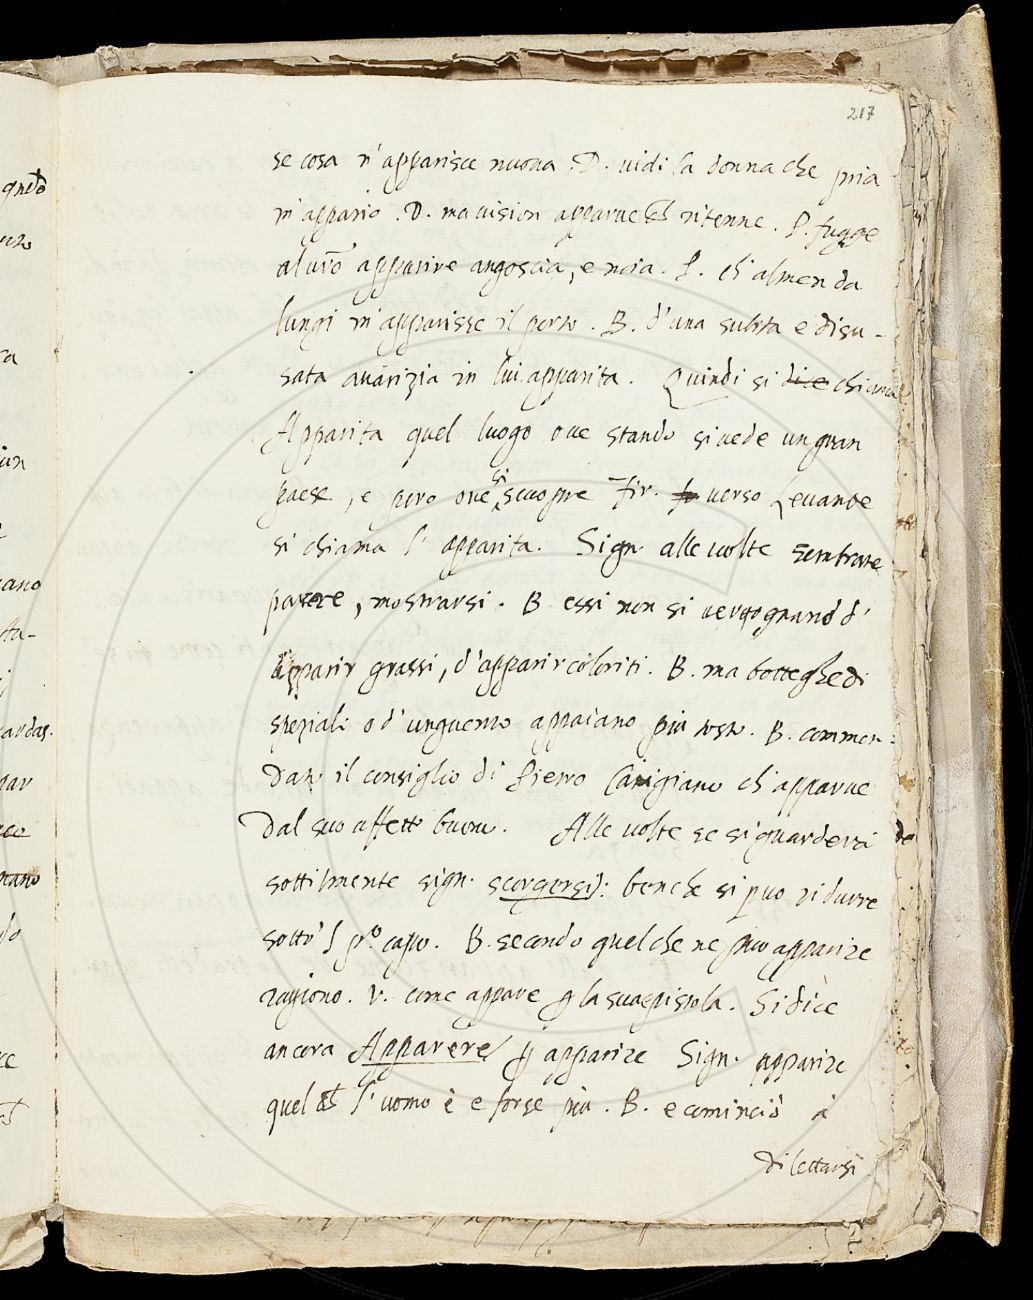 217
se cosa n'apparisce nuoua. D. uidi la donna che pria
m'appario. D. ma uision apparue ritenne. P. fugge
al uiso apparire angoscia, e noia. P. ch'almen da
lungi m'apparisse il porto. B. d'una subita e disu-
sata auarizia in lui apparita. Quindi si dice chiama
Apparita quel luogo oue stando si uede un gran
paese, e pero oue si scuopre Fir. uerso Leuante
si chiama l'apparita. Sign. alle uolte sembrare
parere, mostrarsi. B. essi non si uergognano d'
apparir grassi, d'apparir coloriti. B. ma botteghe di
speziali o d'unguento appaiano più tosto. B. commen-
dato il consiglio di Pietro Canigiano ch'apparue
dal suo affetto buono. Alle uolte se si guarderà
sottilmente sign. scorgersi: benche si puo ridurre
sotto 'l p.o capo. B. secondo quel che ne può apparire
ragiono. V. come appare la sua epistola. Si dice
ancora Apparere apparire Sign. apparire
quel l'uomo è e forse più. B. e cominciò à
dilettarsi